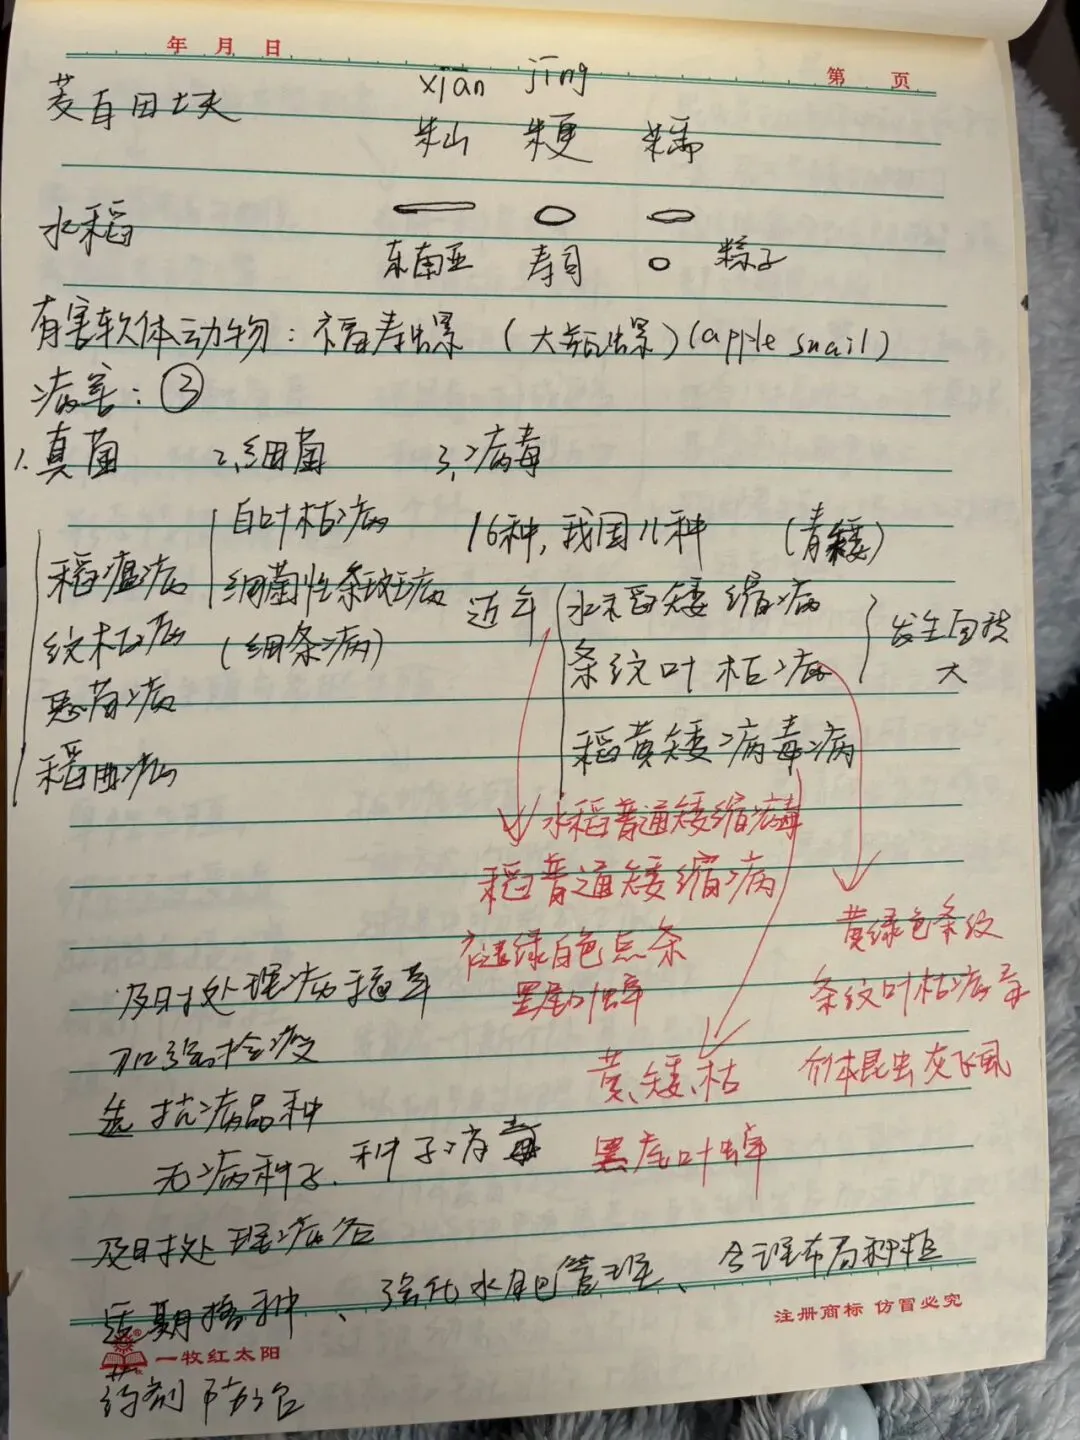 年 月 日
第 页
xiān jīng
麦自田块
籼 粳 糯
水稻
东南亚 寿司 粽子
有害软体动物：福寿螺 (大瓶螺)(apple snail)
病害：③
1.真菌 2.细菌 3.病毒
白叶枯病 16种,我国11种 (青矮)
稻瘟病 细菌性条斑病 近年 水稻矮缩病
纹枯病 (细条病) 条纹叶枯病 发生面积大
恶苗病
稻曲病 稻黄矮病毒病
水稻普通矮缩病毒
稻普通矮缩病
褪绿白色点条 黄绿色条纹
黑尾叶蝉 条纹叶枯病毒
及时处理病稻草
加强检疫 黄、矮、枯 介体昆虫灰飞虱
选抗病品种
无病种子、种子消毒 黑尾叶蝉
及时处理病谷
适期播种、强化水肥管理、合理布局种植
注册商标 仿冒必究
一牧红太阳
药剂防治